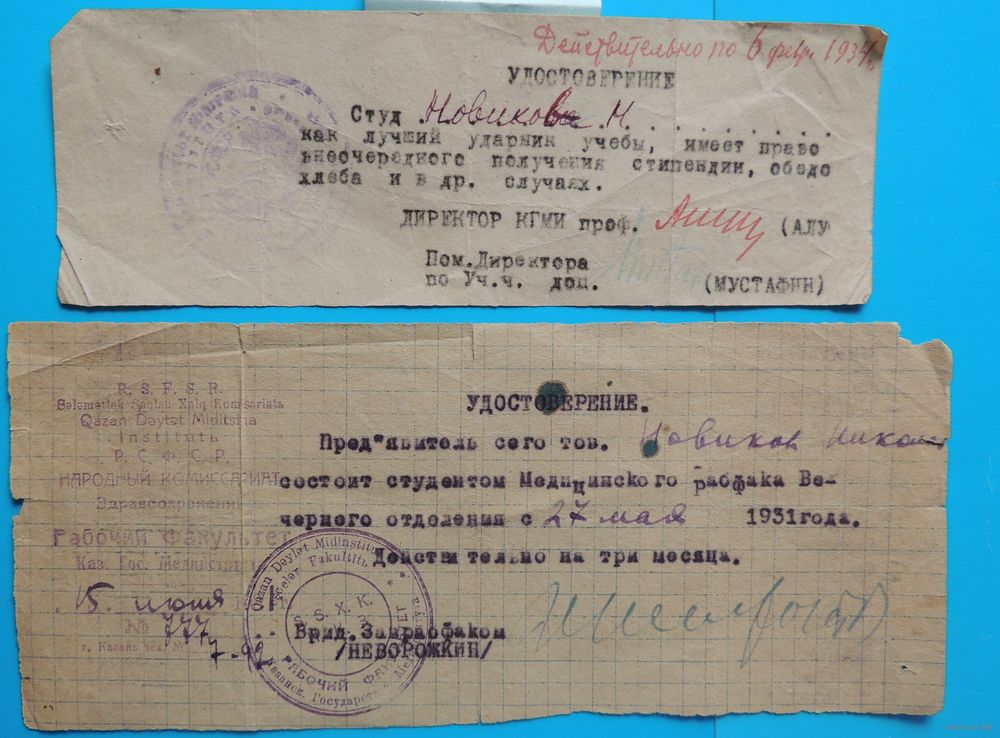 Действительно по 6 февр. 1934г.
УДОСТОВЕРЕНИЕ
Студ. Новикова Н. . . . . . . . .
как лучший ударник учебы, имеет право
внеочередного получения стипендии, обедо
хлеба и в др. случаях.
ДИРЕКТОР КГМИ проф. (АЛУ
Пом.Директора
по Уч.ч. доц. (МУСТАФИН)
R. S. F. S. R.
Selamettek Saqlau Xalq Komisariatь
Qazan Dəylət Miditsina
Institutь
Р. С. Ф. С. Р.
НАРОДНЫЙ КОМИССАРИАТ
Здравоохранения
Рабочий Факультет
Каз. Гос. Мединстит
15 июня
№ 777
г. Казань
УДОСТОВЕРЕНИЕ.
Пред"явитель сего тов. Новиков Никол
состоит студентом Медицинского рабфака Ве-
чернего отделения с 27 мая 1931года.
Действительно на три месяца.
Врид.Завраофаком
/НЕВОРОЖКИН/
Qazan Dəylət Midinstitu
Eşceler Fakultitь
S. S. X. K.
РАБОЧИЙ ФАК
Казанск. Государств. Мед